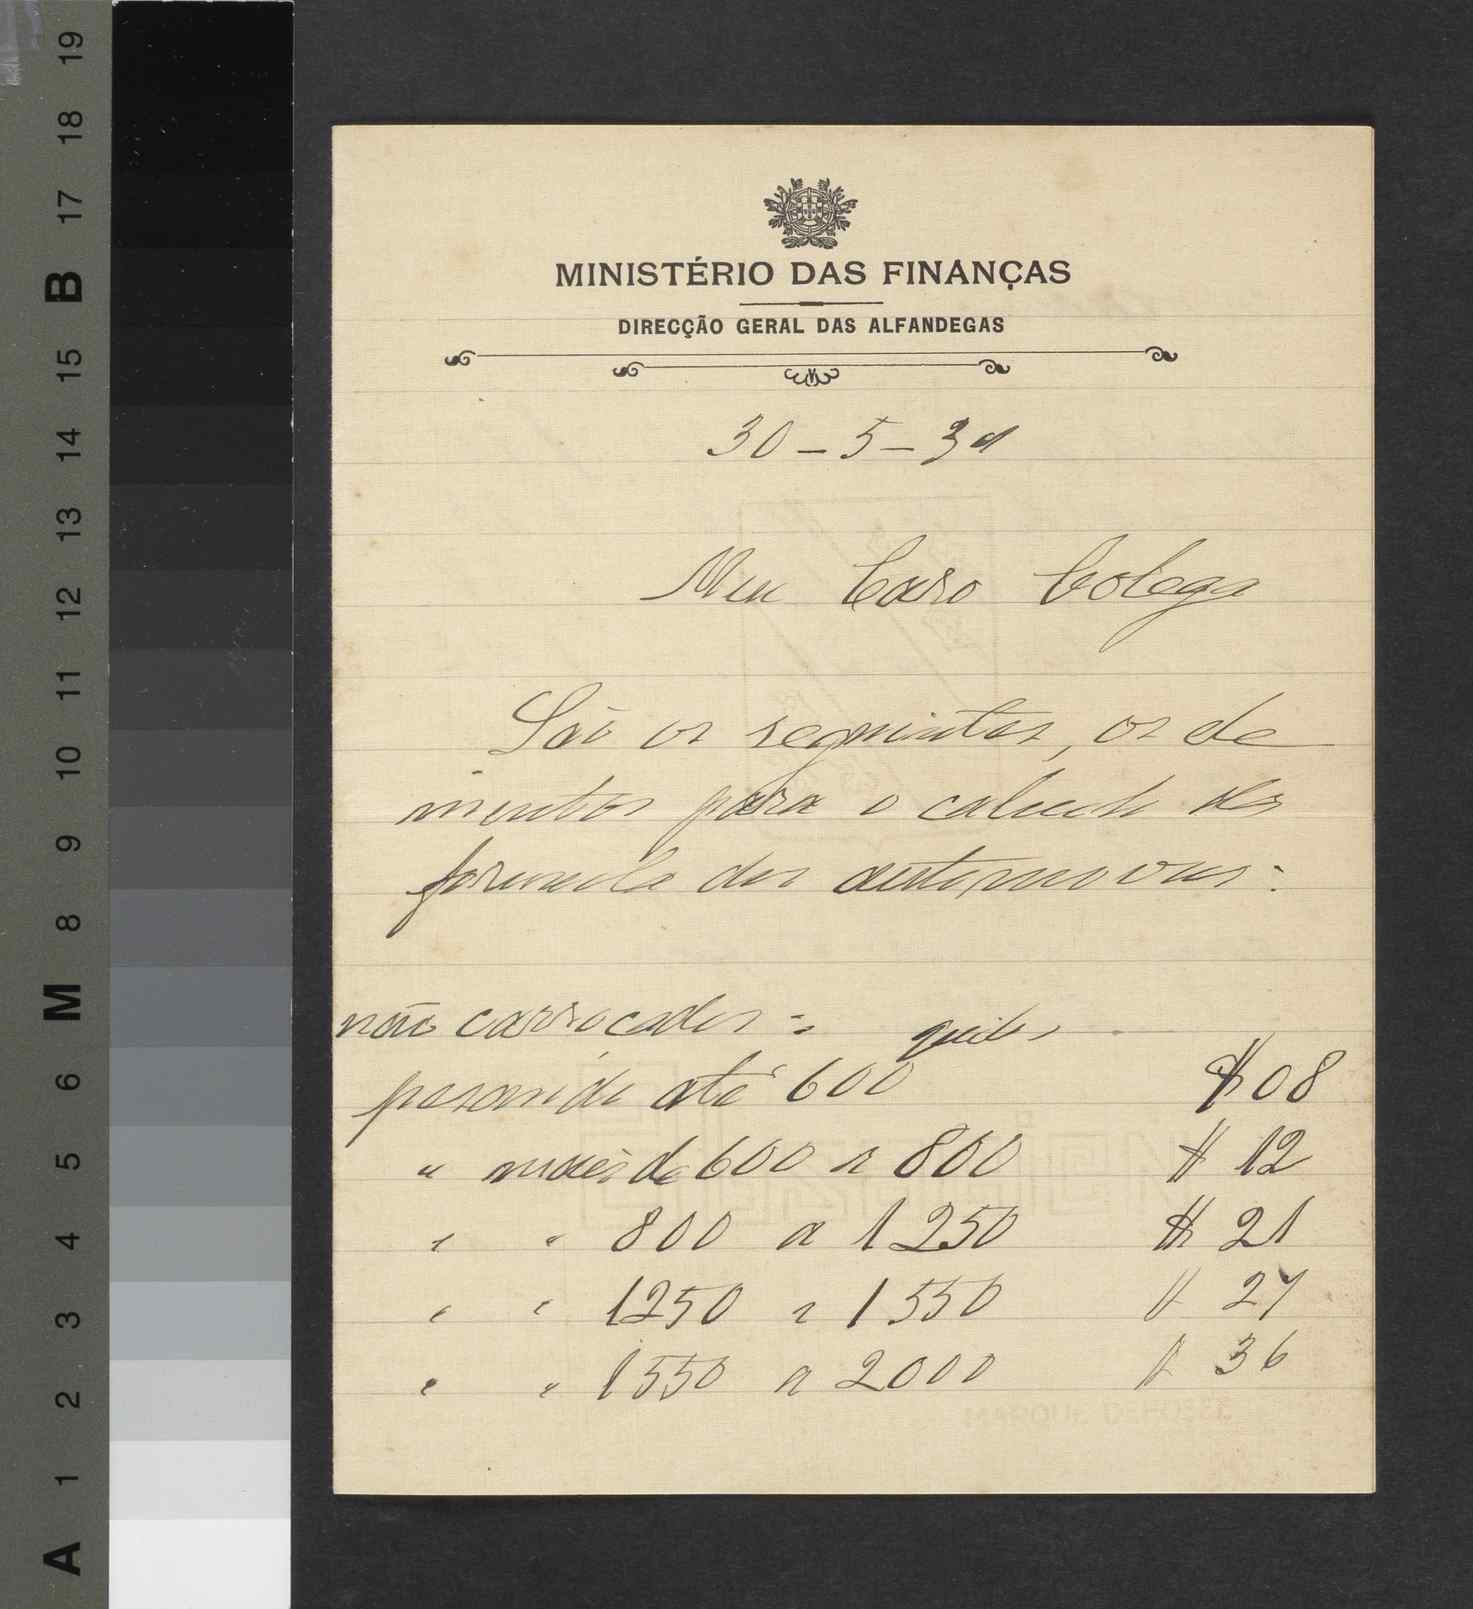 19
18
17
B
15
14
13
12
11
10
9
8
M
6
5
4
3
2
1
A
MINISTÉRIO DAS FINANÇAS
DIRECÇÃO GERAL DAS ALFANDEGAS
30-5-31
Meu Caro Colega
São os seguintes, os ele
mentos para o calculo da
formula dos automoveis:
não carroçados:
quilos
pesando até 600 $08
" mais de 600 a 800 $12
" " 800 a 1250 $21
" " 1250 a 1550 $27
" " 1550 a 2000 $36
MARQUE DEPOSÉE